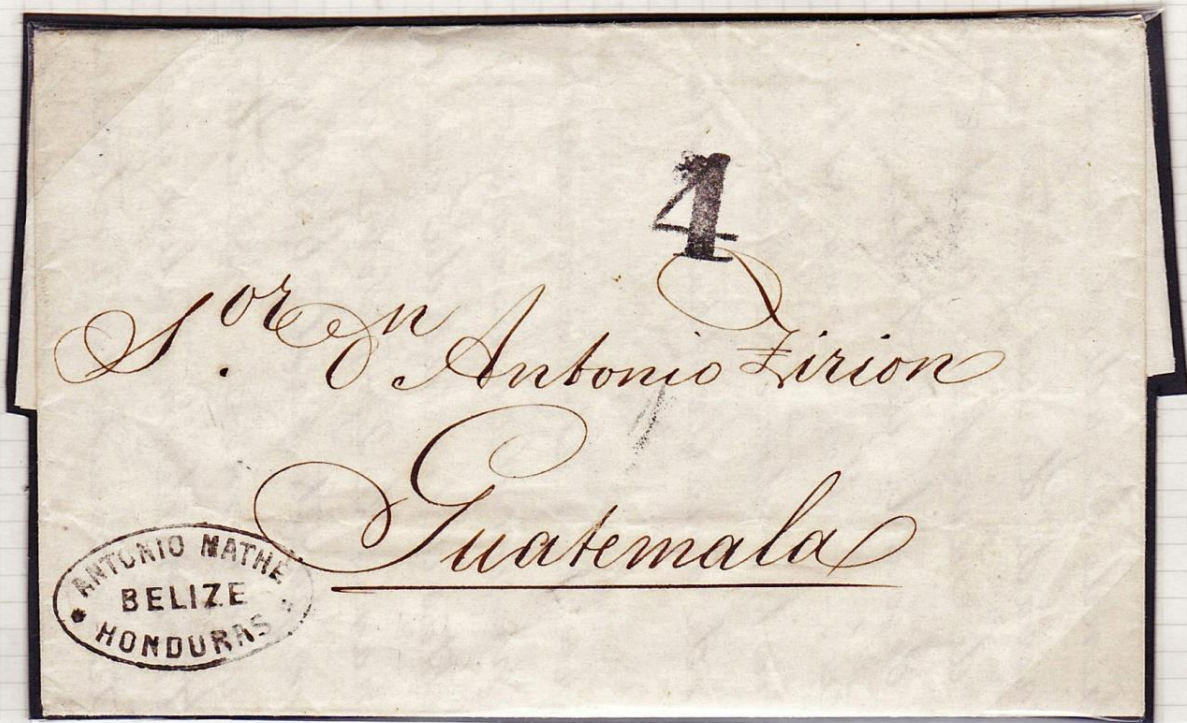 4
S.or Dn Antonio Zirion
Guatemala
ANTONIO MATHE
BELIZE
HONDURAS